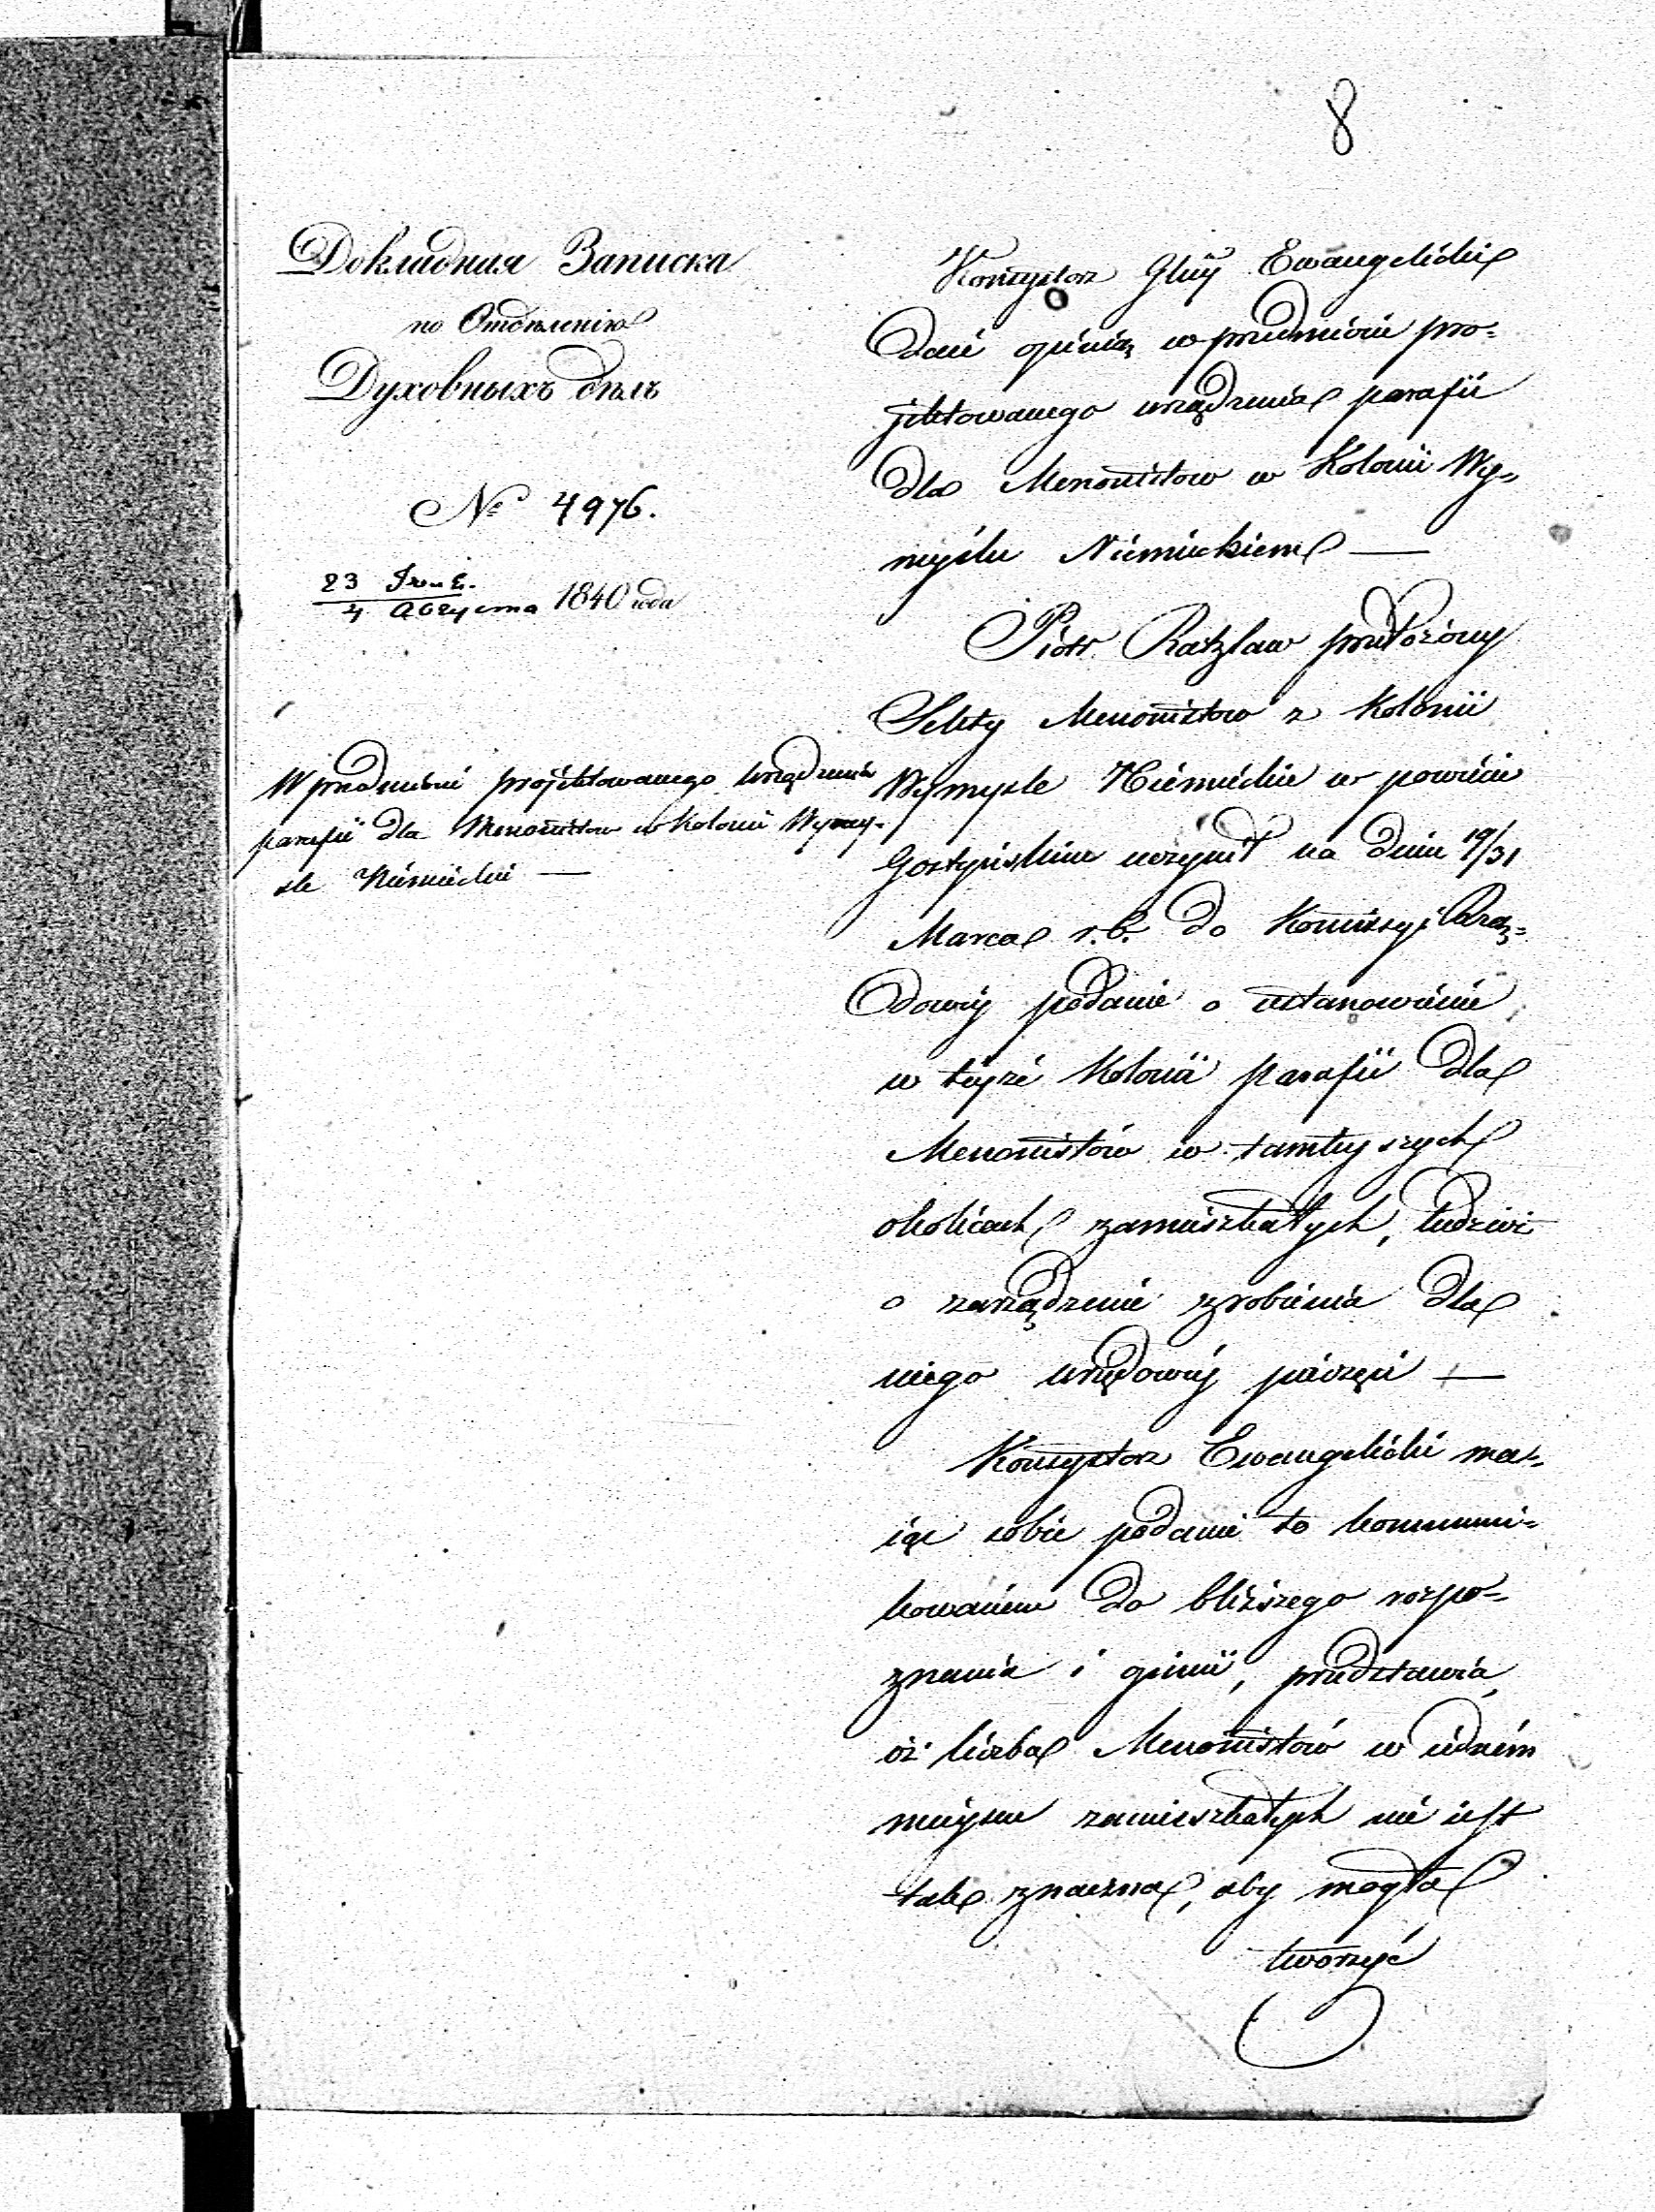 8
Докладная Записка
по Отдѣленію
Духовныхъ дѣлъ
№ 4976.
23 Іюля
4 Августа 1840 года
W przedmiocie projektowanego urządzenia
parafii dla Menonistow w Kolonii Wymy-
śle Niemieckie —
Konsystorz Glny Ewangelicki
daie opinią w przedmiocie pro-
jektowanego urządzenia parafii
dla Menonistow w Kolonii Wy-
myślu Niemieckiem —
Piotr Ratzlaw przełożony
Sekty Menonistow z Kolonii
Wymysle Niemieckie w powiecie
Gostyńskim uczynił na dniu 19/31
Marca r. b. do Komissyi Rzą-
dowéj podanie o ustanowienie
w téjże Kolonii parafii dla
Menonistów w tamtejszych
okolicach zamieszkałych, tudzież
o zarządzenie zrobienia dla
niego urzędowéj pieczęci —
Konsystorz Ewangelicki ma-
iąc sobie podanie to kommuni-
kowaném do bliższego rozpo-
znania i opinii, przedstawia,
iż liczba Menonistów w iedném
mieyscu zamieszkałych nie iest
tak znaczna, aby mogła
tworzyć